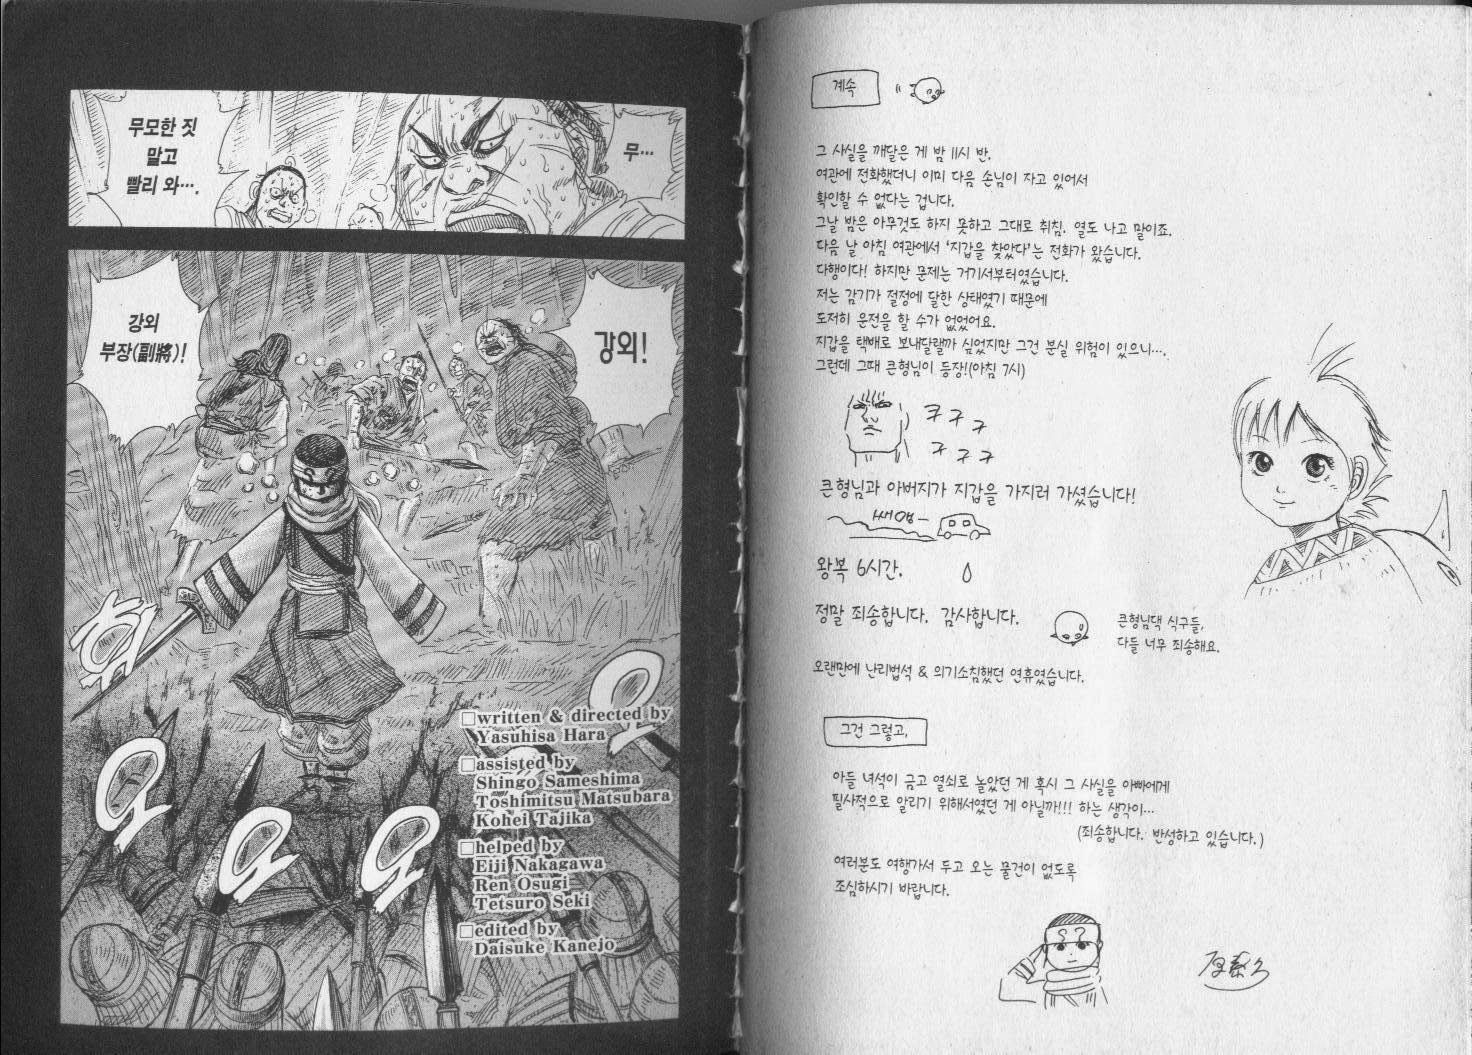 무모한 짓
말고
빨리 와….
무…
강외
부장(副將)!
강외!
화
오
오
오
오
□written & directed by
Yasuhisa Hara
□assisted by
Shingo Sameshima
Toshimitsu Matsubara
Kohei Tajika
□helped by
Eiji Nakagawa
Ren Osugi
Tetsuro Seki
□edited by
Daisuke Kanejo
계속
그 사실을 깨달은 게 밤 11시 반.
여관에 전화했더니 이미 다음 손님이 자고 있어서
확인할 수 없다는 겁니다.
그날 밤은 아무것도 하지 못하고 그대로 취침. 열도 나고 말이죠.
다음 날 아침 여관에서 '지갑을 찾았다'는 전화가 왔습니다.
다행이다! 하지만 문제는 거기서부터였습니다.
저는 감기가 절정에 달한 상태였기 때문에
도저히 운전을 할 수가 없었어요.
지갑을 택배로 보내달랄까 싶었지만 그건 분실 위험이 있으니….
그런데 그때 큰형님이 등장!(아침 7시)
쿠구구
구구구
큰형님과 아버지가 지갑을 가지러 가셨습니다!
쌔앵-
왕복 6시간.
정말 죄송합니다. 감사합니다.
큰형님댁 식구들,
다들 너무 죄송해요.
오랜만에 난리법석 & 의기소침했던 연휴였습니다.
그건 그렇고,
아들 녀석이 금고 열쇠로 놀았던 게 혹시 그 사실을 아빠에게
필사적으로 알리기 위해서였던 게 아닐까!!! 하는 생각이…
(죄송합니다. 반성하고 있습니다.)
여러분도 여행가서 두고 오는 물건이 없도록
조심하시기 바랍니다.